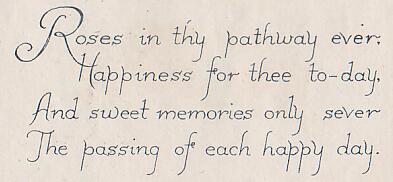 Roses in thy pathway ever;
Happiness for thee to-day,
And sweet memories only sever
The passing of each happy day.